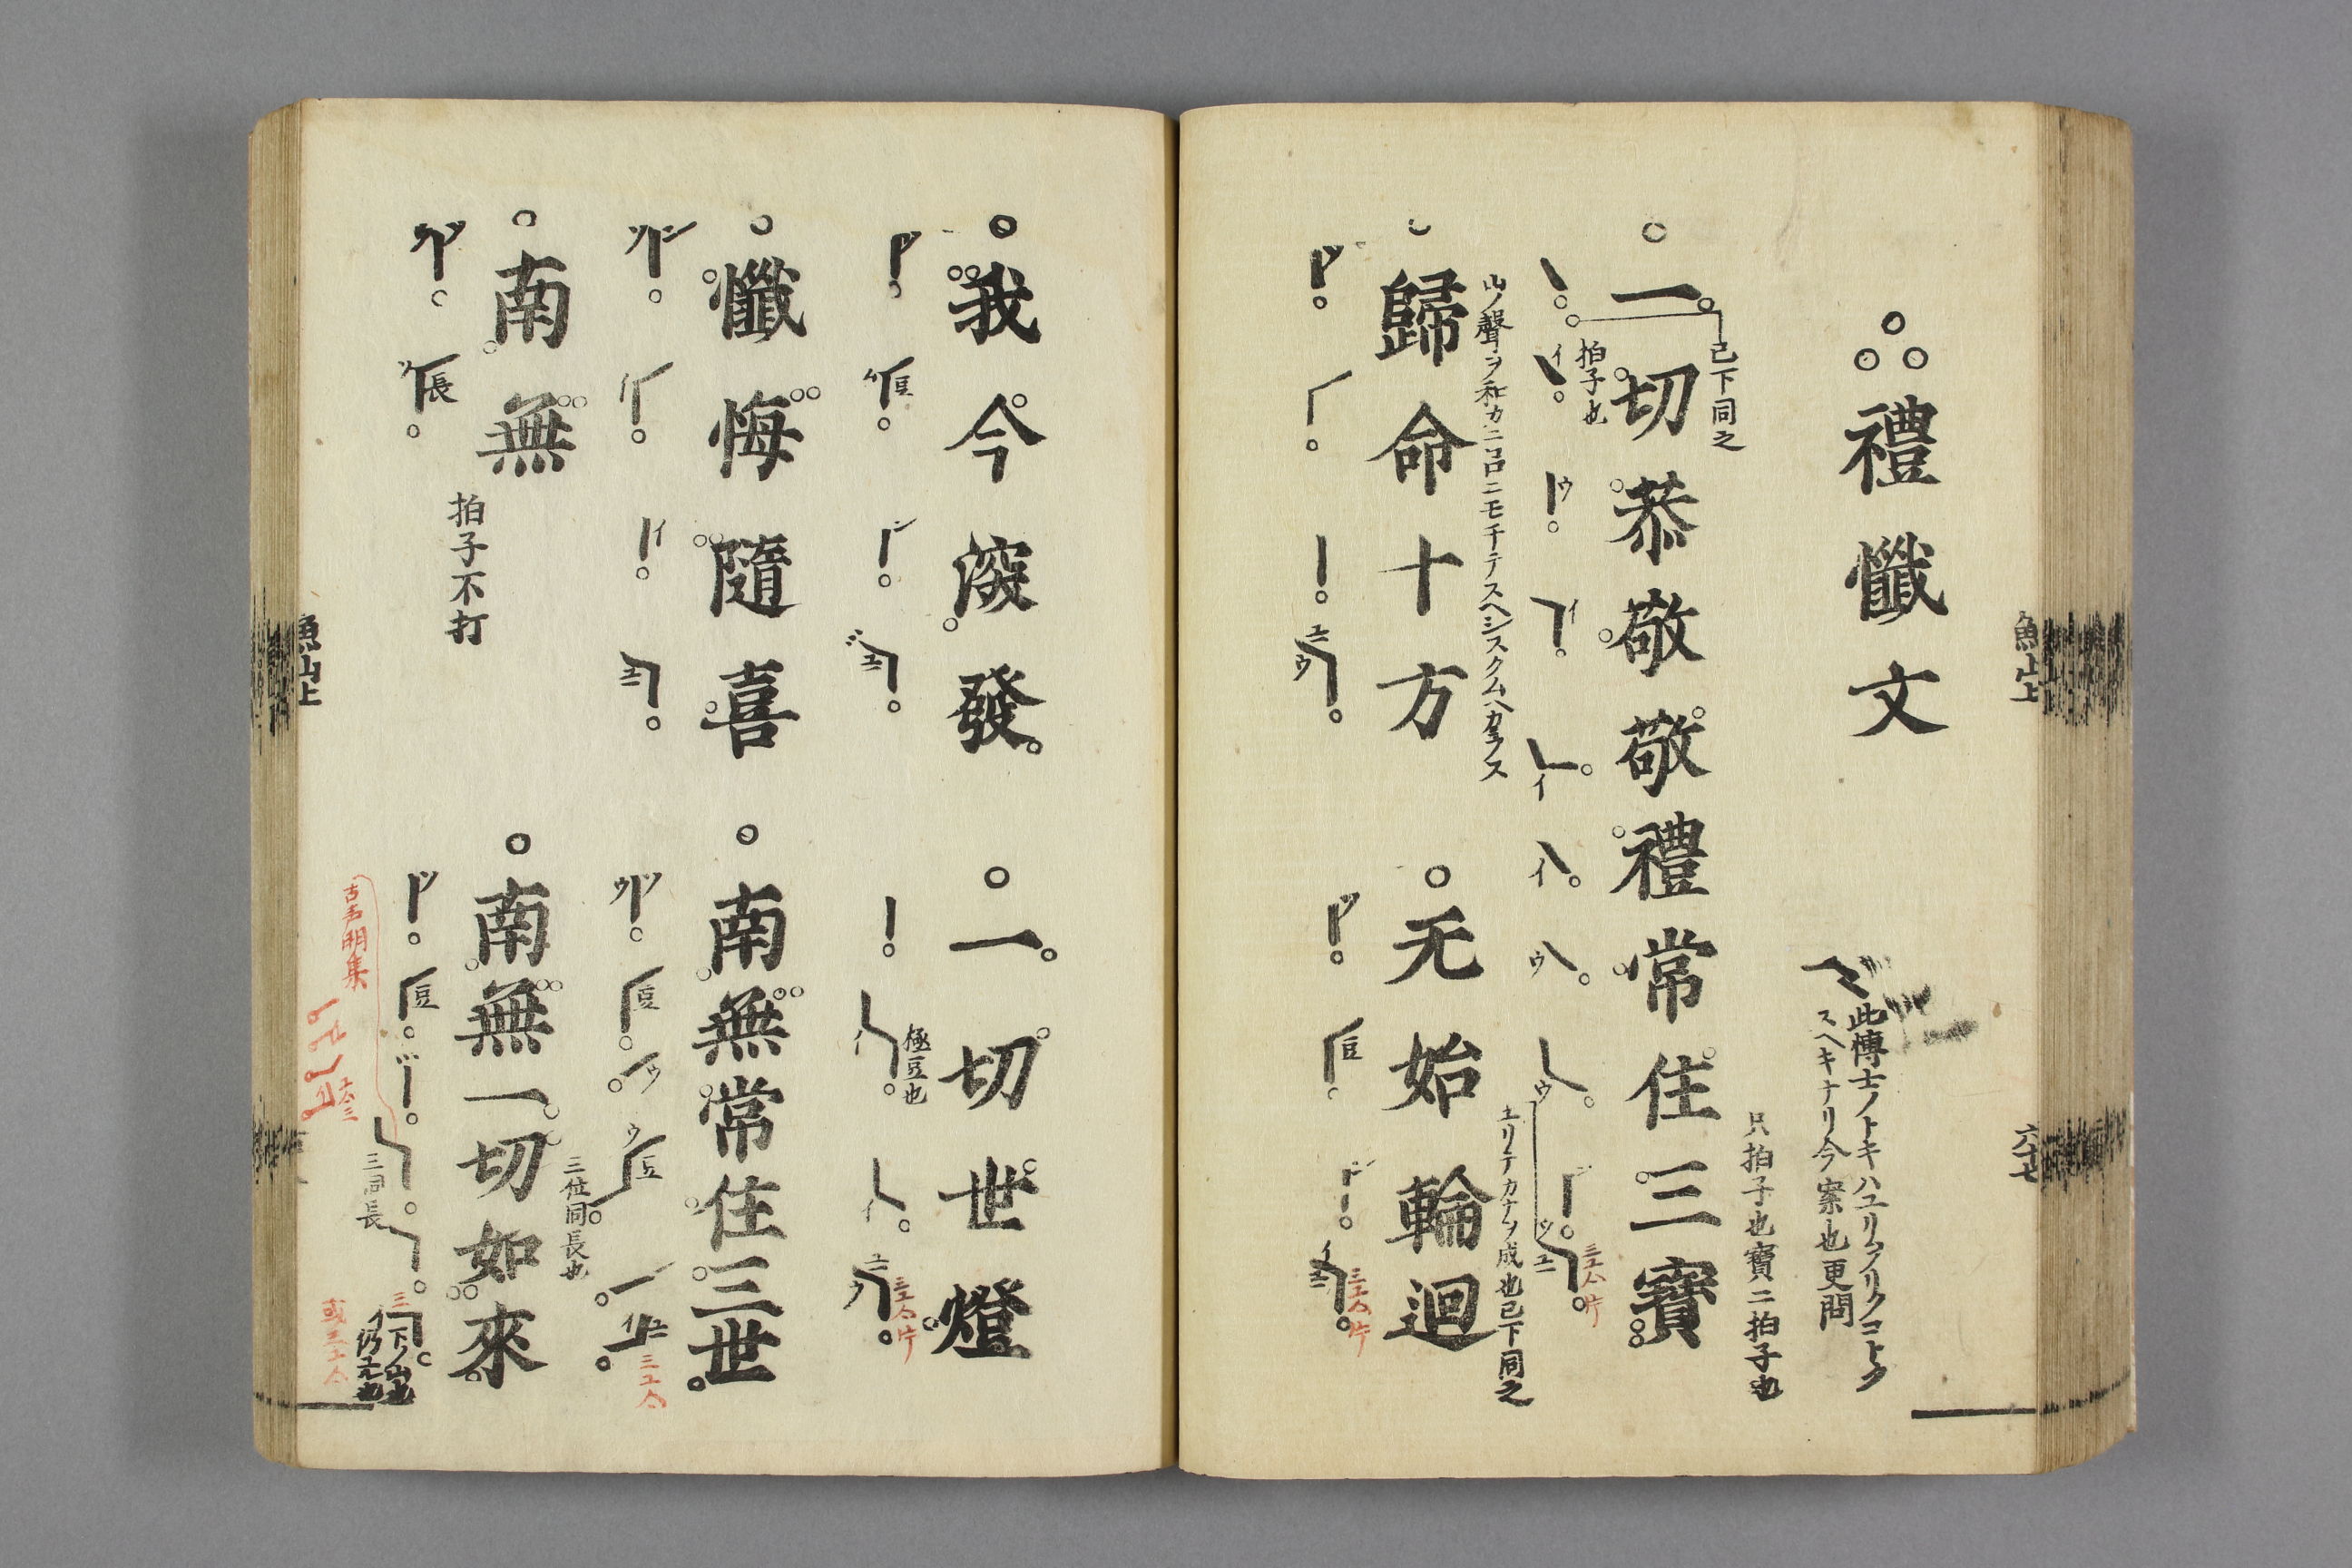 禮懺文
此博士ノトキハユリクリクコトク
スヘキナリ今案也更問
只拍子也寶二拍子也
已下同之
一切恭敬敬禮常住三寶
拍子也
三エ合片
ユリテカナヲ成也已下同之
歸命十方
无始輪迴
豆
三エ合片
魚山上
六十七
我今深發
一切世燈
極豆也
豆
三エ合片
懺悔隨喜
南無常住三世
豆
豆
三エ合
三位同長也
南無
拍子不打
長
南無一切如來
豆
三同長
古声明集
或三エ合
魚山上